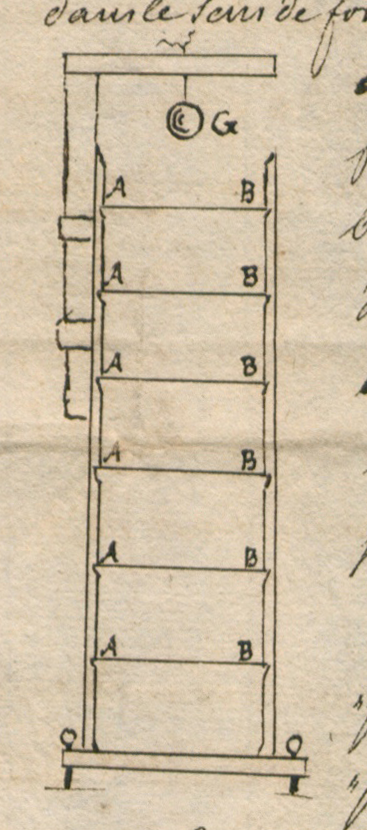 dans le sens de
G
A B
A B
A B
A B
A B
A B